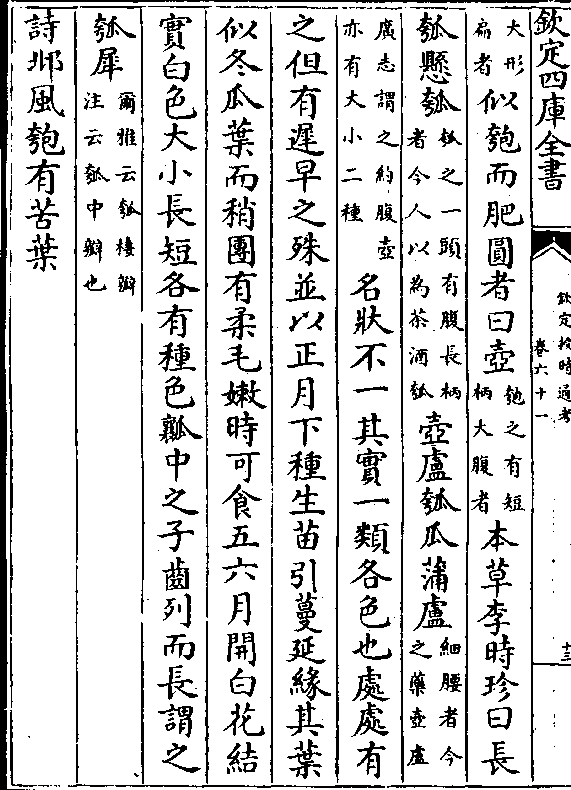 欽定四庫全書
欽定授時通考
卷六十一
十三
大形扁者似匏而肥圓者曰壺匏之有短柄大腹者本草李時珍曰長
瓠懸瓠瓠之一頭有腹長柄者今人以為茶酒瓠壺盧瓠瓜蒲盧細腰者今之藥壺盧
廣志謂之約腹壺亦有大小二種名狀不一其實一類各色也處處有
之但有遲早之殊並以正月下種生苗引蔓延緣其葉
似冬瓜葉而稍團有柔毛嫩時可食五六月開白花結
實白色大小長短各有種色瓤中之子齒列而長謂之
瓠犀爾雅云瓠棲瓣注云瓠中瓣也
詩邶風匏有苦葉